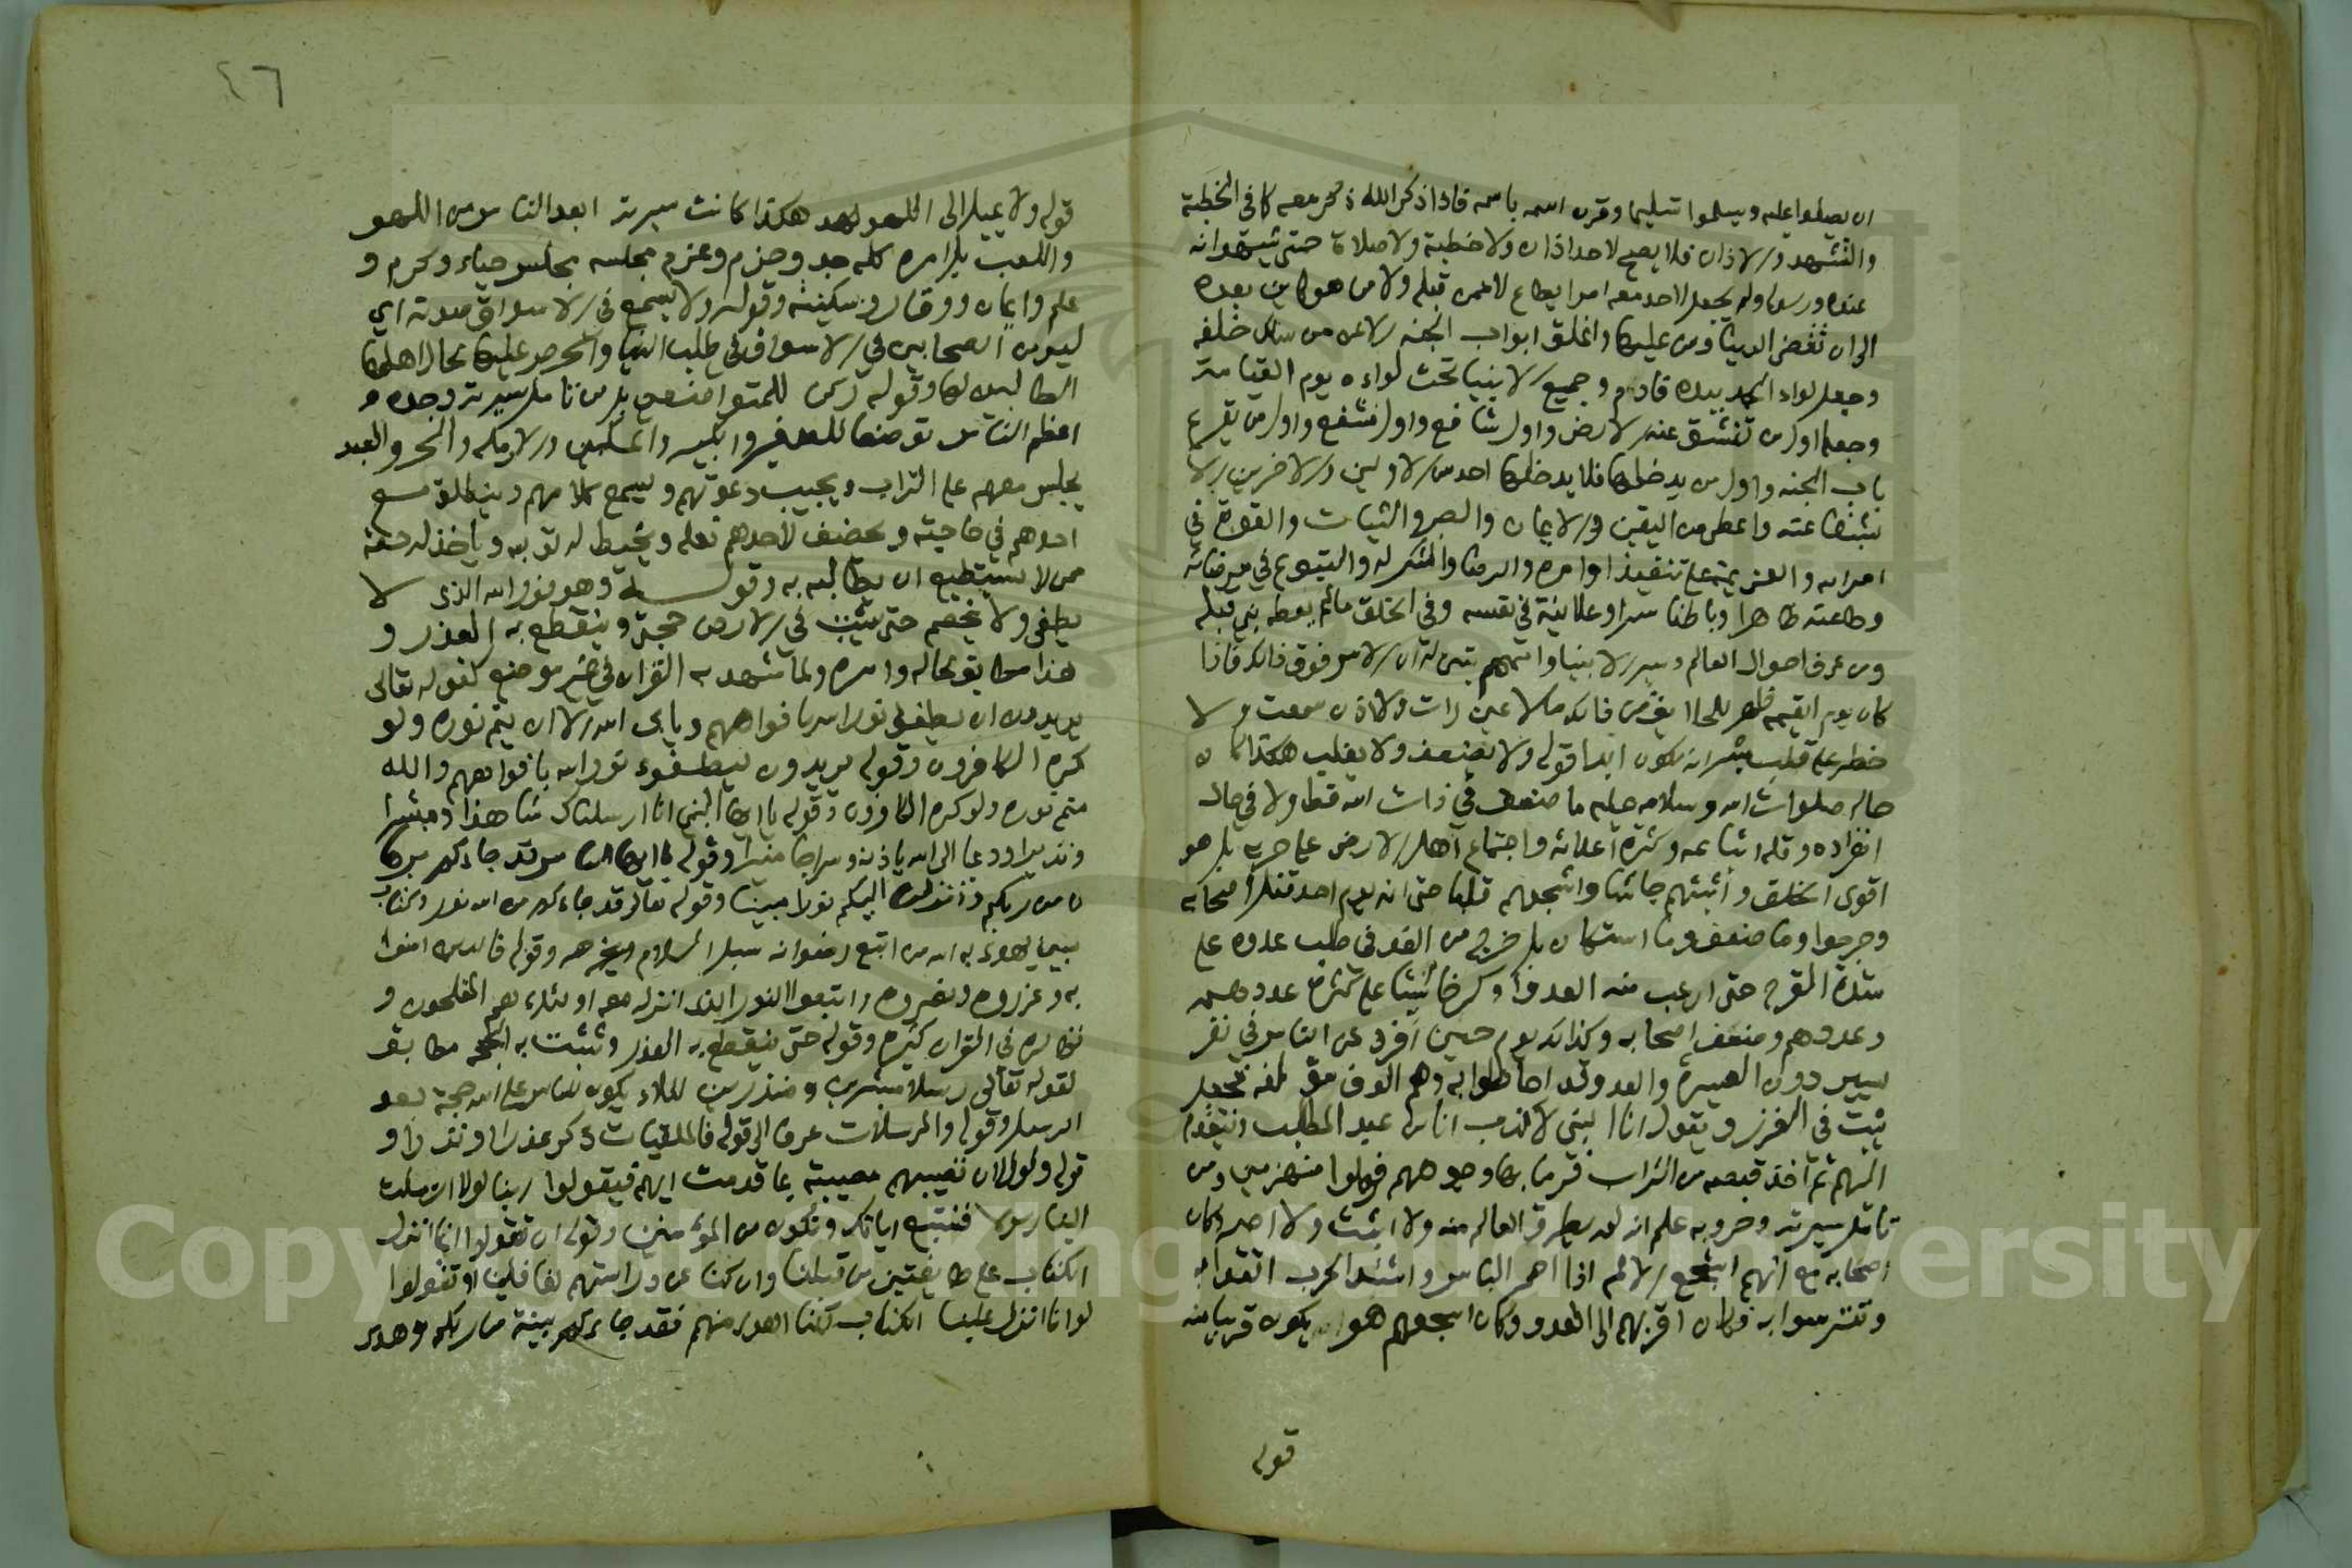 ان يصلوا عليه ويسلموا تسليما وقرن اسمه باسمه فاذا ذكر الله ذكر معه كما في الخطبة
والتشهد والاذان فلا يصح لاحد اذان ولا خطبة ولا صلاة حتى يشهد انه
عبده ورسوله ولم يجعل لاحد معه امرا يطاع لا ممن قبله ولا من هو كاين بعده
الى ان تنقضي الدنيا ومن عليها واغلق ابواب الجنه الا عن من سلك خلفه
وجعل لواء الحمد بيده فادم وجميع الانبيا تحت لواءه يوم القيامة
وجعله اول من تنشق عنه الارض واول شافع واول مشفع واول من يقرع
باب الجنه واول من يدخلها فلا يدخلها احد من الاولين والاخرين الا
بشفاعته واعطي من اليقين والايمان والصبر والثبات والقوة في
امر الله والعزيمة على تنفيذ اوامره والرضا والشكر له والتنوع في مرضاته
وطاعته ظاهرا وباطنا سرا وعلانية في نفسه وفي الخلق ما لم يعطه نبي قبله
ومن عرف احوال العالم وسير الانبيا واممهم تبين له ان الامر فوق ذلك فاذا
كان يوم القيمه ظهر للخلائق من ذلك ما لا عين رات ولا اذن سمعت ولا
خطر على قلب بشر انه يكون ابدا قوله ولا يضعف ولا يغلب هكذا كان
حاله صلوات الله وسلامه عليه ما ضعف في ذات الله قط ولا في حال
انفراده وقلة اتباعه وكثرة اعدائه واجتماع اهل الارض على حربه بل هو
اقوى الخلق واثبتهم جاشا واشجعهم قلبا حتى انه يوم احد قتل اصحابه
وجرحوا وما ضعف وما استكان بل خرج من الغد في طلب عدوه على
شدة القرح حتى ارعب منه العدو وكر خاسئا على كثرة عددهم
وعددهم وضعف اصحابه وكذلك يوم حنين افرد عن الناس في نفر
يسير دون العشرة والعدو قد احاطوا به وهم الوف مؤلفه فجعل
يثب في الغزر ويقول انا النبي لا كذب انا ابن عبد المطلب ويتقدم
اليهم ثم اخذ قبضه من التراب فرمى بها وجوههم فولوا منهزمين ومن
تامل سيرته وحروبه علم انه لم يطرق العالم منه ولا اثبت ولا اصبر وكان
اصحابه مع انهم اشجع الامم اذا احمر الباس واشتد الحرب اتقوا به
وتترسوا به فكان اقربهم الى العدو وكان اشجعهم هو الذي يكون قريبا منه
قوله
٤٦
قوله ولا يميل الى اللهو هكذا كانت سيرته ابعد الناس من اللهو
واللعب بل امره كله جد وحزم وعزم مجلسه مجلس حياء وكرم و
علم وايمان ووقار وسكينه وقوله ولا يسمع في الاسواق صوته اي
ليس من الصخابين في الاسواق في طلب الدنيا والحرص عليها كحال اهلها
الطالبين لها وقوله ركن للمتواضعين بل من تامل سيرته وجده
اعظم الناس تواضعا للصغير والكبير والمسكين والارمله والحر والعبد
يجلس معهم على التراب ويجيب دعوتهم ويسمع كلامهم وينطلق مع
احدهم في حاجته ويخصف لاحدهم نعله ويخيط له ثوبه وياخذ له حقه
ممن لا يستطيع ان يطالبه به وقوله وهو نور الله الذي لا
يطفي ولا يخصم حتى يثبت في الارض حجتي وينقطع به العذر و
هذا مطابق لحاله وامره ولما شهد به القران في غير موضع كقوله تعالى
يريدون ان يطفئوا نور الله بافواههم ويابى الله الا ان يتم نوره ولو
كره الكافرون وقوله يريدون ليطفوء نور الله بافواههم والله
متم نوره ولو كره الكافرون وقوله يا ايها النبي انا ارسلناك شاهدا ومبشرا
ونذيرا وداعيا الى الله باذنه وسراجا منيرا وقوله يا ايها الناس قد جاءكم برها
ن من ربكم وانزلنا اليكم نورا مبينا وقوله تعالى قد جاءكم من الله نور وكتاب
مبين يهدي به الله من اتبع رضوانه سبل السلام وقوله فالذين امنوا
به وعزروه ونصروه واتبعوا النور الذي انزل معه اولئك هم المفلحون و
نظائره في القران كثيره وقوله حتى ينقطع به العذر وتثبت به الحجه مطابق
لقوله تعالى رسلا مبشرين ومنذرين لئلا يكون للناس على الله حجة بعد
الرسل وقوله والمرسلات عرفا الى قوله فالملقيات ذكرا عذرا او نذرا و
قوله ولولا ان تصيبهم مصيبة بما قدمت ايديهم فيقولوا ربنا لولا ارسلت
الينا رسولا فنتبع اياتك ونكون من المؤمنين وقوله ان تقولوا انما انزل
الكتاب على طايفتين من قبلنا وان كنا عن دراستهم لغافلين او تقولوا
لو انا انزل علينا الكتاب لكنا اهدى منهم فقد جاءكم بينة من ربكم وهدى
Copyright © King Saud University